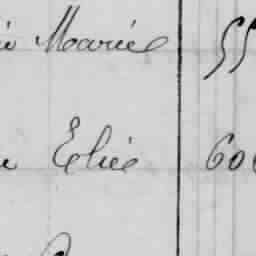 Marie 55
Elie 60